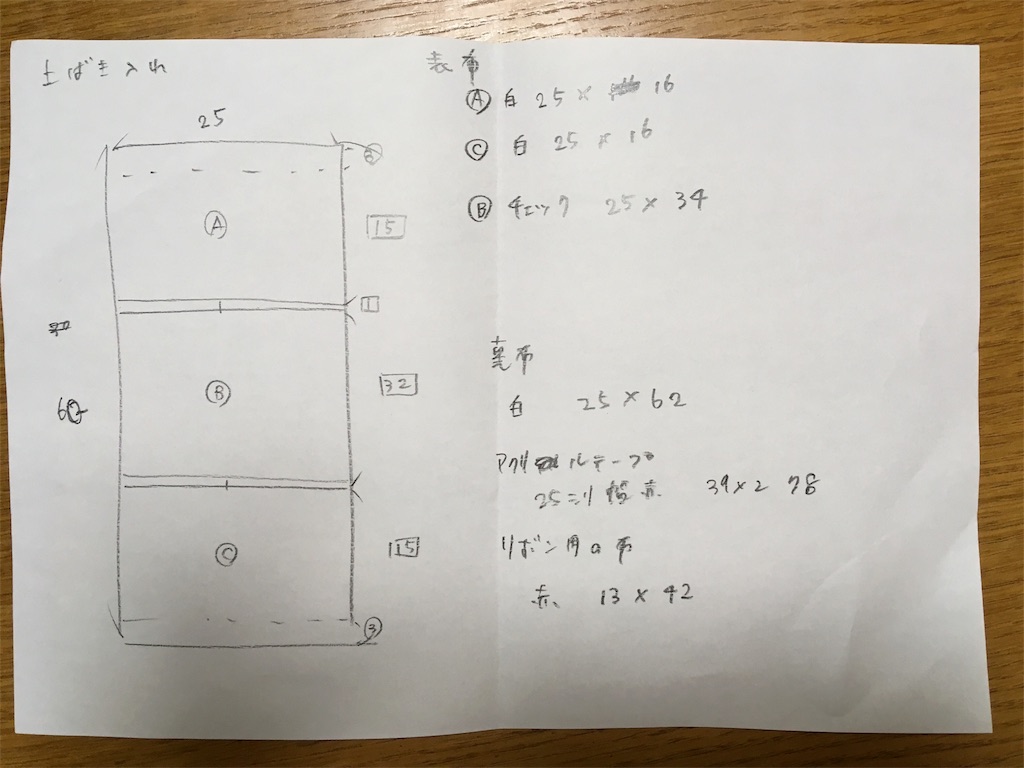 上ばき入れ
25
③
Ⓐ
15
1
Ⓑ
60
32
Ⓒ
15
③
表布
Ⓐ 白 25 × 16
Ⓒ 白 25 × 16
Ⓑ チェック 25 × 34
裏布
白 25 × 62
アクリルテープ
25ミリ幅 赤 39×2 78
リボン用の布
赤 13 × 42